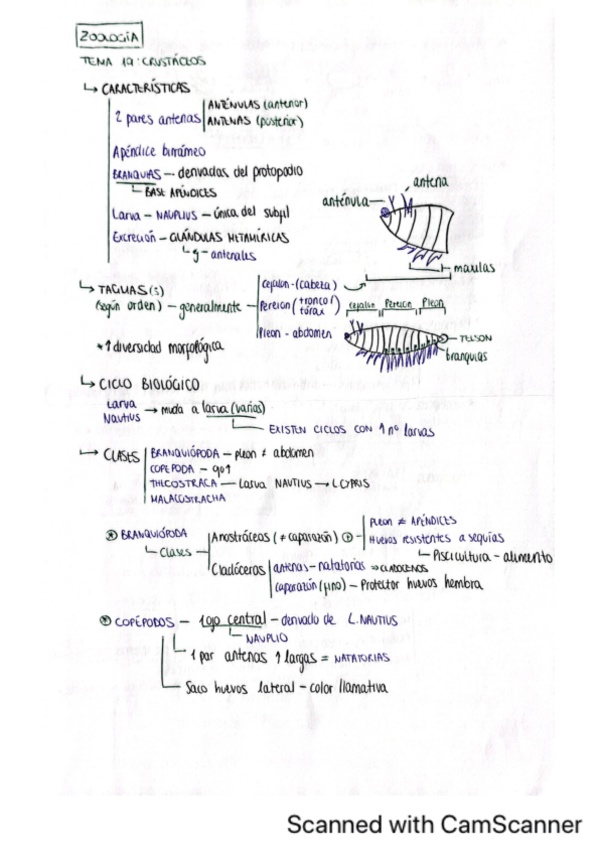 ZOOLOGÍA
TEMA 19: CRUSTÁCEOS
↳ CARACTERÍSTICAS
2 pares antenas | ANTÉNULAS (anterior)
ANTENAS (posterior)
Apéndice birrámeo
BRANQUIAS — derivadas del protopodio
BASE APÉNDICES
Larva — NAUPLIUS — única del subfil
Excreción — GLÁNDULAS METAMÉRICAS
↳ g — antenales
antena
anténula
maxilas
↳ TAGMAS(s)
(según orden) — generalmente
Cefalon - (cabeza)
Pereion (tronco/
tórax)
Pleon - abdomen
Cefalon Pereion Pleon
TELSON
branquias
* ↑ diversidad morfológica
↳ CICLO BIOLÓGICO
Larva
Nautius → muda a larva (varias)
EXISTEN CICLOS CON ↑ nº larvas
↳ CLASES | BRANQUIÓPODA — pleon ≠ abdomen
COPEPODA — 90↑
THECOSTRACA — Larva NAUTIUS → L CYPRIS
MALACOSTRACHA
BRANQUIÓPODA
Clases
Anostráceos (≠ caparazón)
Pleon ≠ APÉNDICES
Huevos resistentes a sequías
Piscicultura - alimento
Cladóceros | antenas - natatorias ⇒ CLADOCEROS
caparazón (fino) — Protector huevos hembra
COPÉPODOS — 1 ojo central — derivado de L. NAUTIUS
NAUPLIO
1 par antenas ↑ largas = NATATORIAS
Saco huevos lateral - color llamativa
Scanned with CamScanner